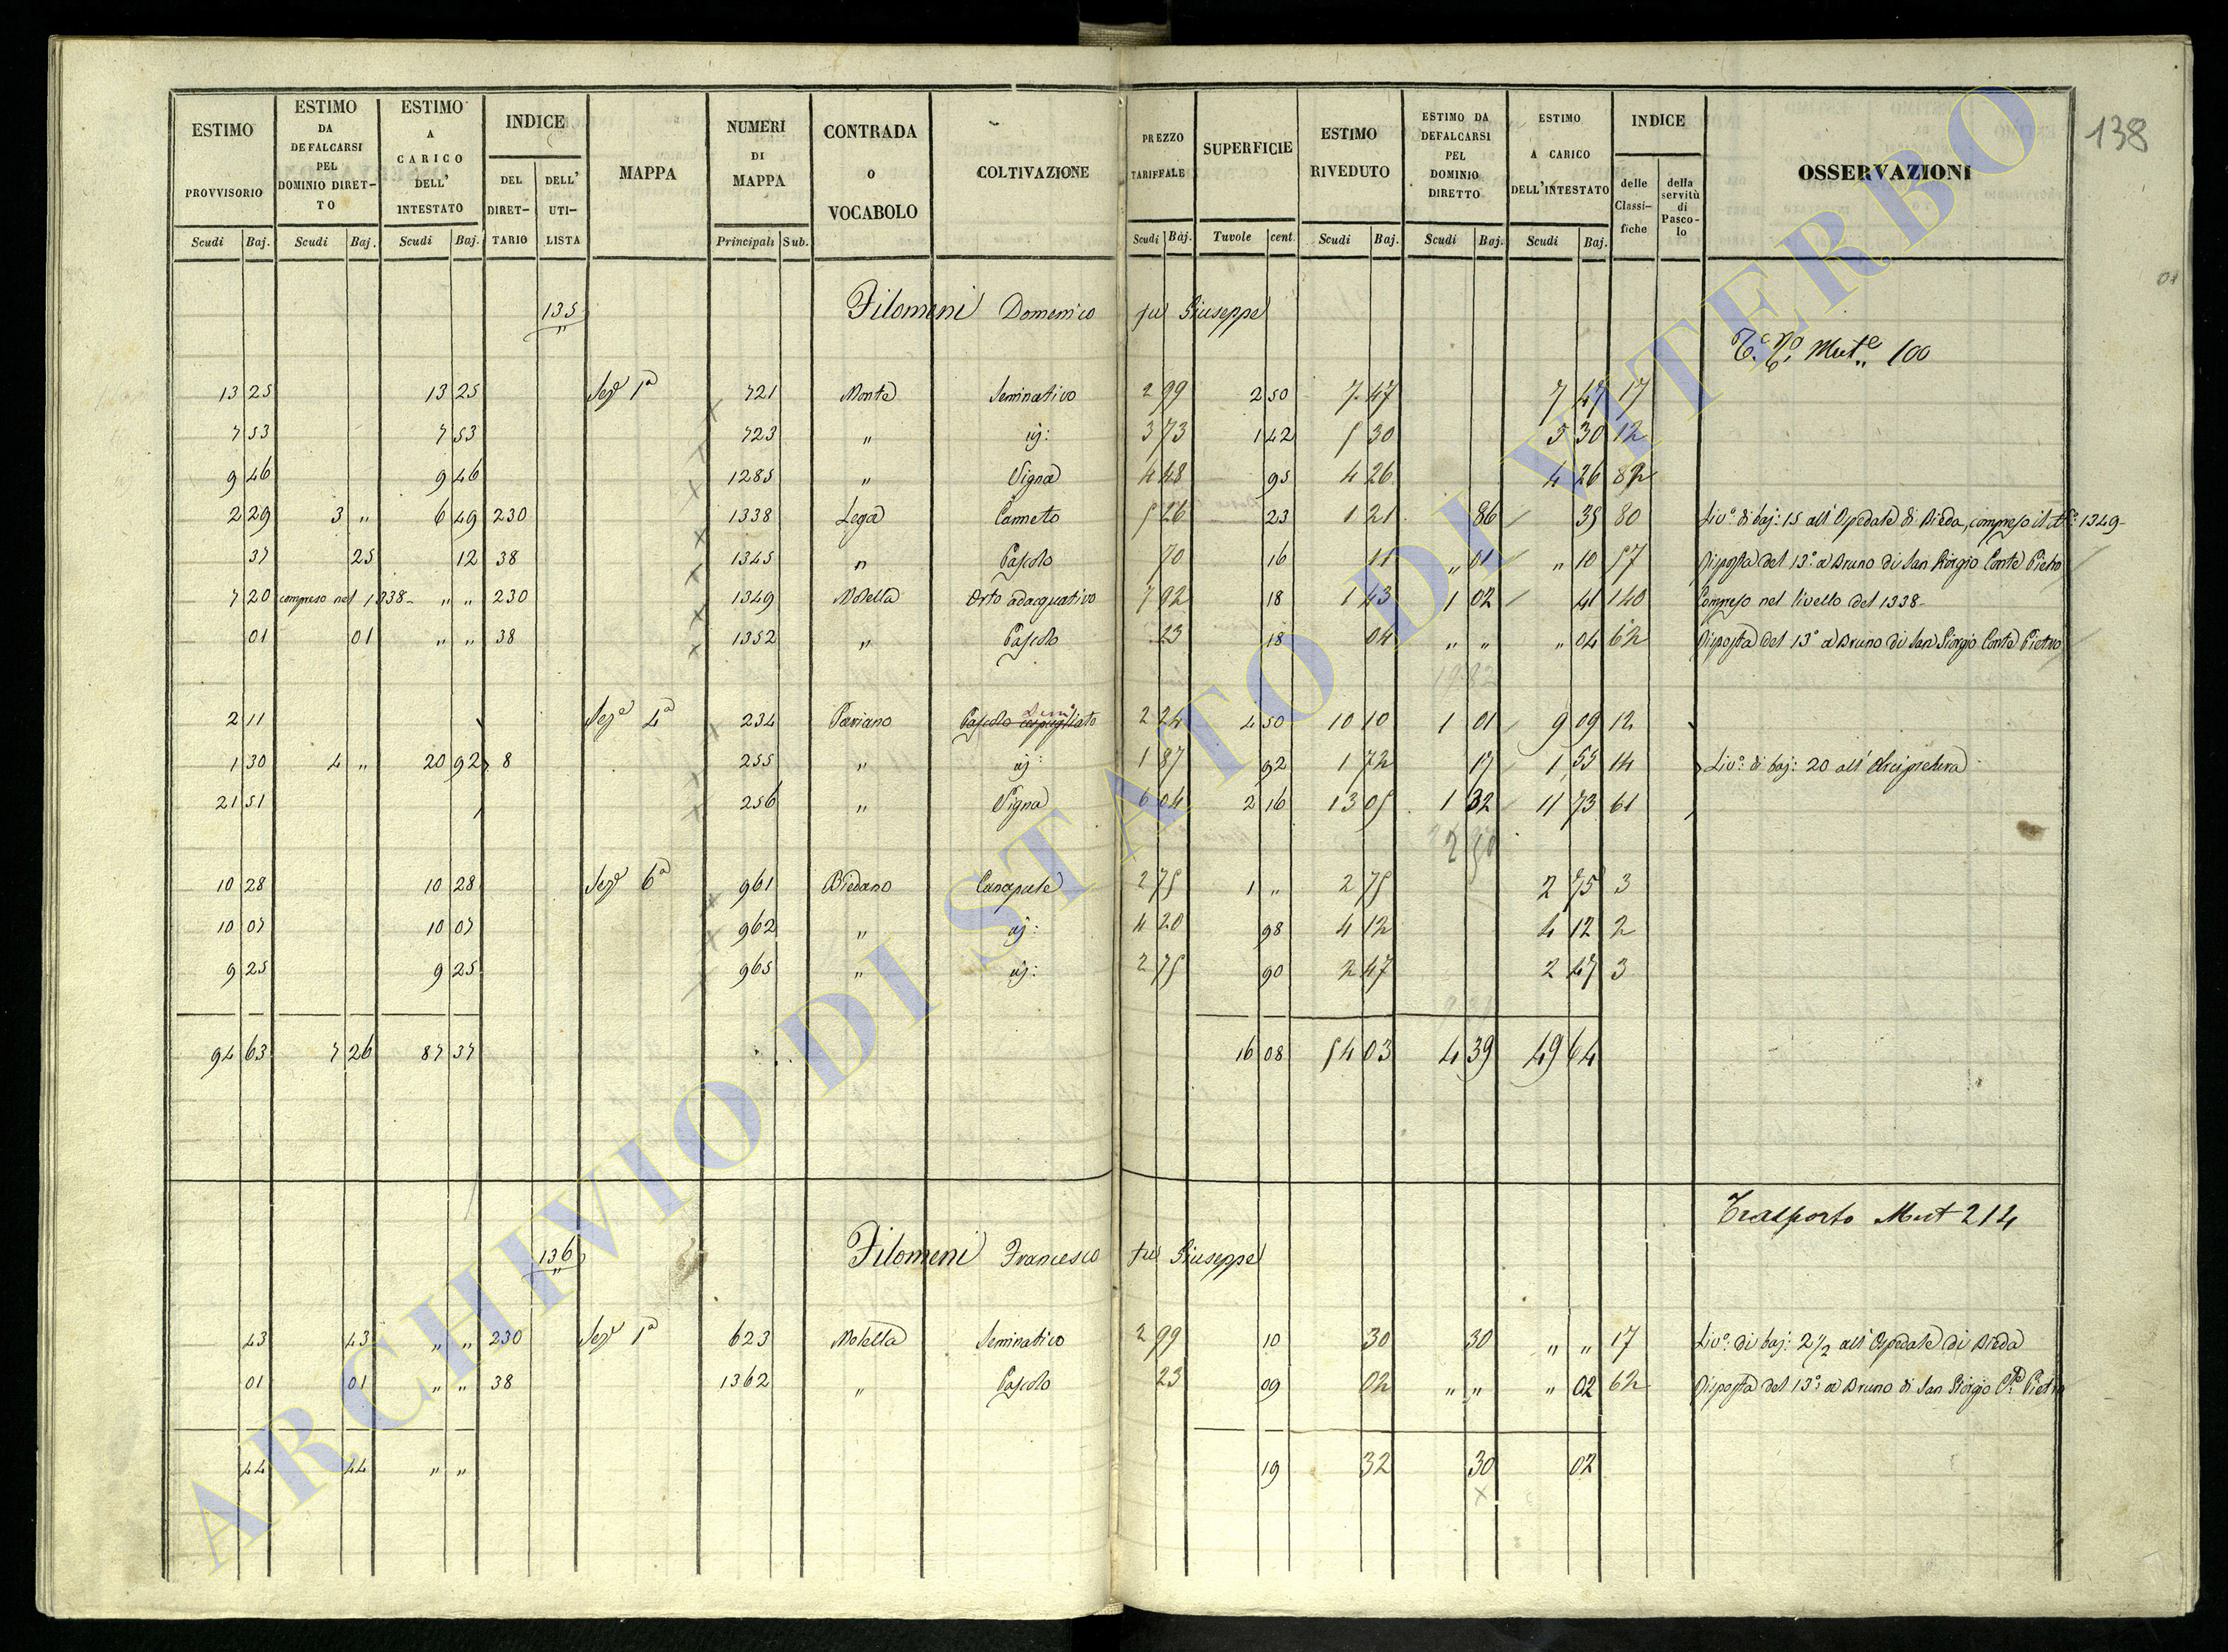 138
ESTIMO PROVVISORIO Scudi Baj.
ESTIMO DA DEFALCARSI PEL DOMINIO DIRETTO Scudi Baj.
ESTIMO A CARICO DELL' INTESTATO Scudi Baj.
INDICE DEL DIRETTARIO DELL' UTILISTA
MAPPA
NUMERI DI MAPPA Principali Sub.
CONTRADA o VOCABOLO
COLTIVAZIONE
PREZZO TARIFFALE Scudi Baj.
SUPERFICIE Tavole cent.
ESTIMO RIVEDUTO Scudi Baj.
ESTIMO DA DEFALCARSI PEL DOMINIO DIRETTO Scudi Baj.
ESTIMO A CARICO DELL' INTESTATO Scudi Baj.
INDICE delle Classifiche della servitù di Pascolo
OSSERVAZIONI
135 Filomeni Domenico fu Giuseppe
Mut.e 100
13 25 13 25 Sez.e 1a 721 Monte Seminativo 2 99 2 50 7 47 7 47 17
7 53 7 53 723 " id: 3 73 1 42 5 30 5 30 12
9 46 9 46 1285 " Vigna 4 48 95 4 26 4 26 82
2 29 3 " 6 49 230 1338 Lega Canneto 5 26 23 1 21 86 35 80 Liv.o di baj: 15 all'Ospedale di Bieda, compreso il N.o 1349
37 25 12 38 1345 " Pascolo 70 16 11 " 01 " 10 57 Risposta del 13.o a Bruno di San Giorgio Conte Pietro
7 20 compreso nel 1338 " " 230 1349 Molella Orto adacquativo 7 92 18 1 43 1 02 41 140 Compreso nel livello del 1338
01 01 " " 38 1352 " Pascolo 23 18 04 " " " 04 62 Risposta del 13.o a Bruno di San Giorgio Conte Pietro
2 11 Sez.e 4a 234 Paviano Pascolo cespugliato Sem.o 2 24 4 50 10 10 1 01 9 09 12
1 30 4 " 20 92 8 255 " id: 1 87 92 1 72 17 1 55 14 Liv.o di baj: 20 all'Arcipretura
21 51 256 " Vigna 6 04 2 16 13 05 1 32 11 73 61
2 50
10 28 10 28 Sez.e 6a 961 Biedano Canapule 2 75 1 " 2 75 2 75 3
10 07 10 07 962 " id: 4 20 98 4 12 4 12 2
9 25 9 25 965 " id: 2 75 90 2 47 2 47 3
94 63 7 26 87 37 16 08 54 03 4 39 49 64
Trasporto Mut 214
136 Filomeni Francesco fu Giuseppe
43 43 " " 230 Sez.e 1a 623 Molella Seminativo 2 99 10 30 30 " " 17 Liv.o di baj: 2 1/2 all'Ospedale di Bieda
01 01 " " 38 1362 " Pascolo 23 09 02 " " " 02 62 Risposta del 13.o a Bruno di San Giorgio C.te Pietro
44 44 " " 19 32 30 02
ARCHIVIO DI STATO DI VITERBO